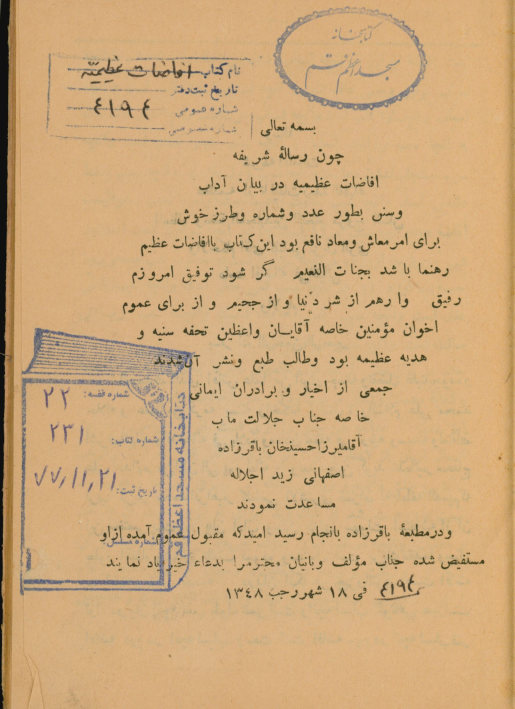 کتابخانه
مسجد اعظم قم
نام کتاب افاضات عظیمیّه
تاریخ ثبت دفتر
شماره عمومی ۴۱۹۴
شماره خصوصی
بسمه تعالی
چون رسالهٔ شریفه
افاضات عظیمیه در بیان آداب
وسنن بطور عدد وشماره وطرز خوش
برای امر معاش ومعاد نافع بود این کتاب باافاضات عظیم
رهنما باشد بجنات النعیم گر شود توفیق امروزم
رفیق وا رهم از شر دنیا و از جحیم و از برای عموم
اخوان مؤمنین خاصه آقایان واعظین تحفه سنیه و
هدیه عظیمه بود وطالب طبع ونشر آن شدند
جمعی از اخیار و برادران ایمانی
خاصه جناب جلالت ماب
آقامیرزا حسینخان باقرزاده
اصفهانی زید اجلاله
مساعدت نمودند
ودرمطبعهٔ باقرزاده بانجام رسید امیدکه مقبول عموم آمده ازاو
مستفیض شده جناب مؤلف وبانیان محترمرا بدعاء خیر یاد نمایند
فی ۱۸ شهر رجب ۱۳۴۸
۴۱۹۴
کتابخانه مسجد اعظم قم
شماره قفسه: ۲۲
شماره کتاب: ۲۳۱
تاریخ ثبت: ۷۷,۱۱,۲۱
شماره مسلسل: